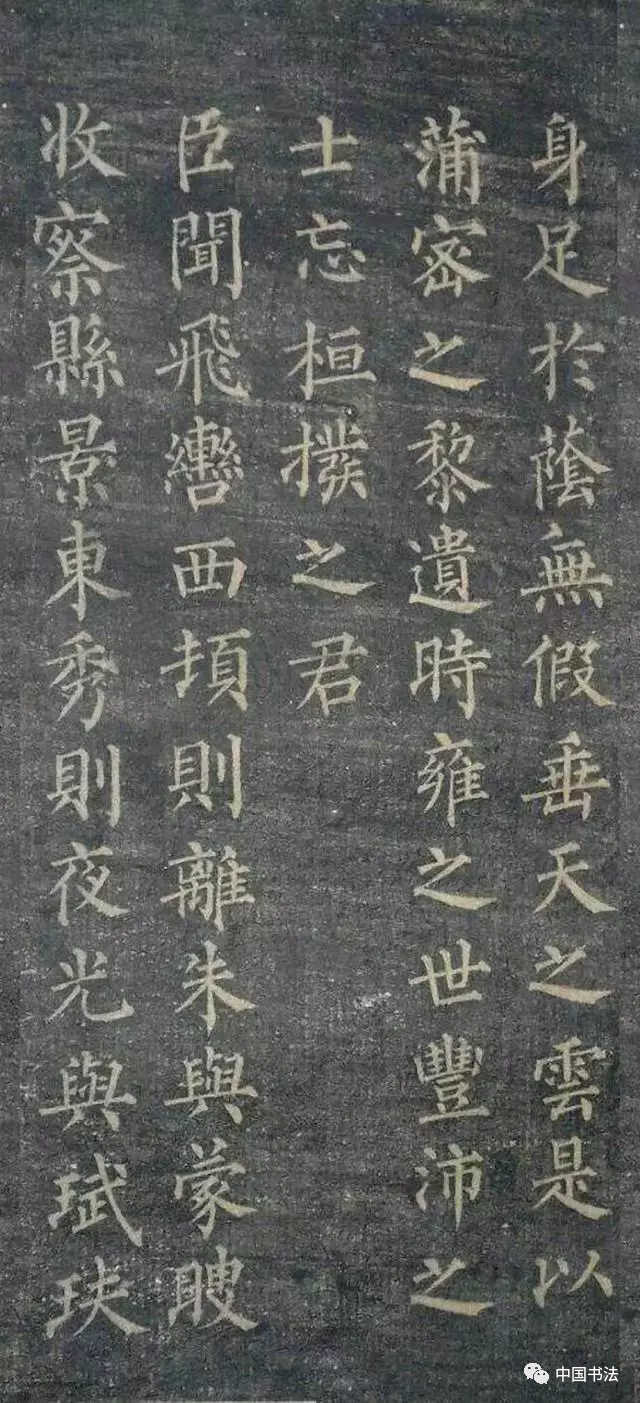 身足於蔭無假垂天之雲是以
蒲密之黎遺時雍之世豐沛之
士忘桓撥之君
臣聞飛轡西頓則離朱與蒙瞍
收察縣景東秀則夜光與珷玞
中国书法